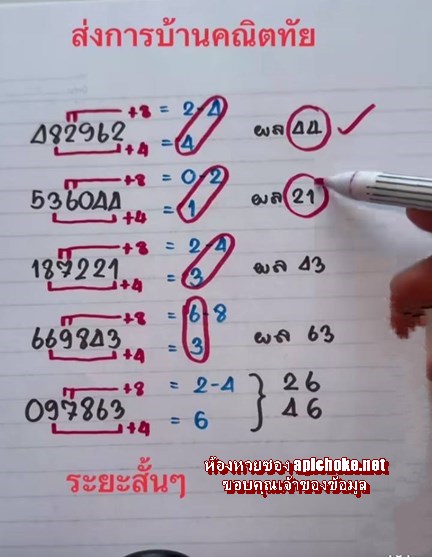 ส่งการบ้านคณิตทัย
482962 +8 = 2-4
+4 = 4
ผล 44
536044 +8 = 0-2
+4 = 1
ผล 21
187221 +8 = 2-4
+4 = 3
ผล 43
669843 +8 = 6-8
+4 = 3
ผล 63
097863 +8 = 2-4 } 26
+4 = 6 46
ระยะสั้นๆ
ห้องหวยซอง apichoke.net
ขอบคุณเจ้าของข้อมูล